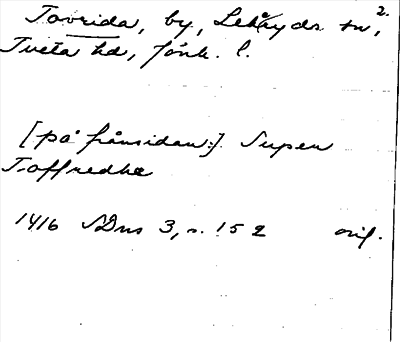 Tovrida, by, Lekeryds sn, 2.
Tveta hd, Jönk. l.
[på frånsidan:] Super
Toffredhe
1416 SDns 3, s. 152 orig.